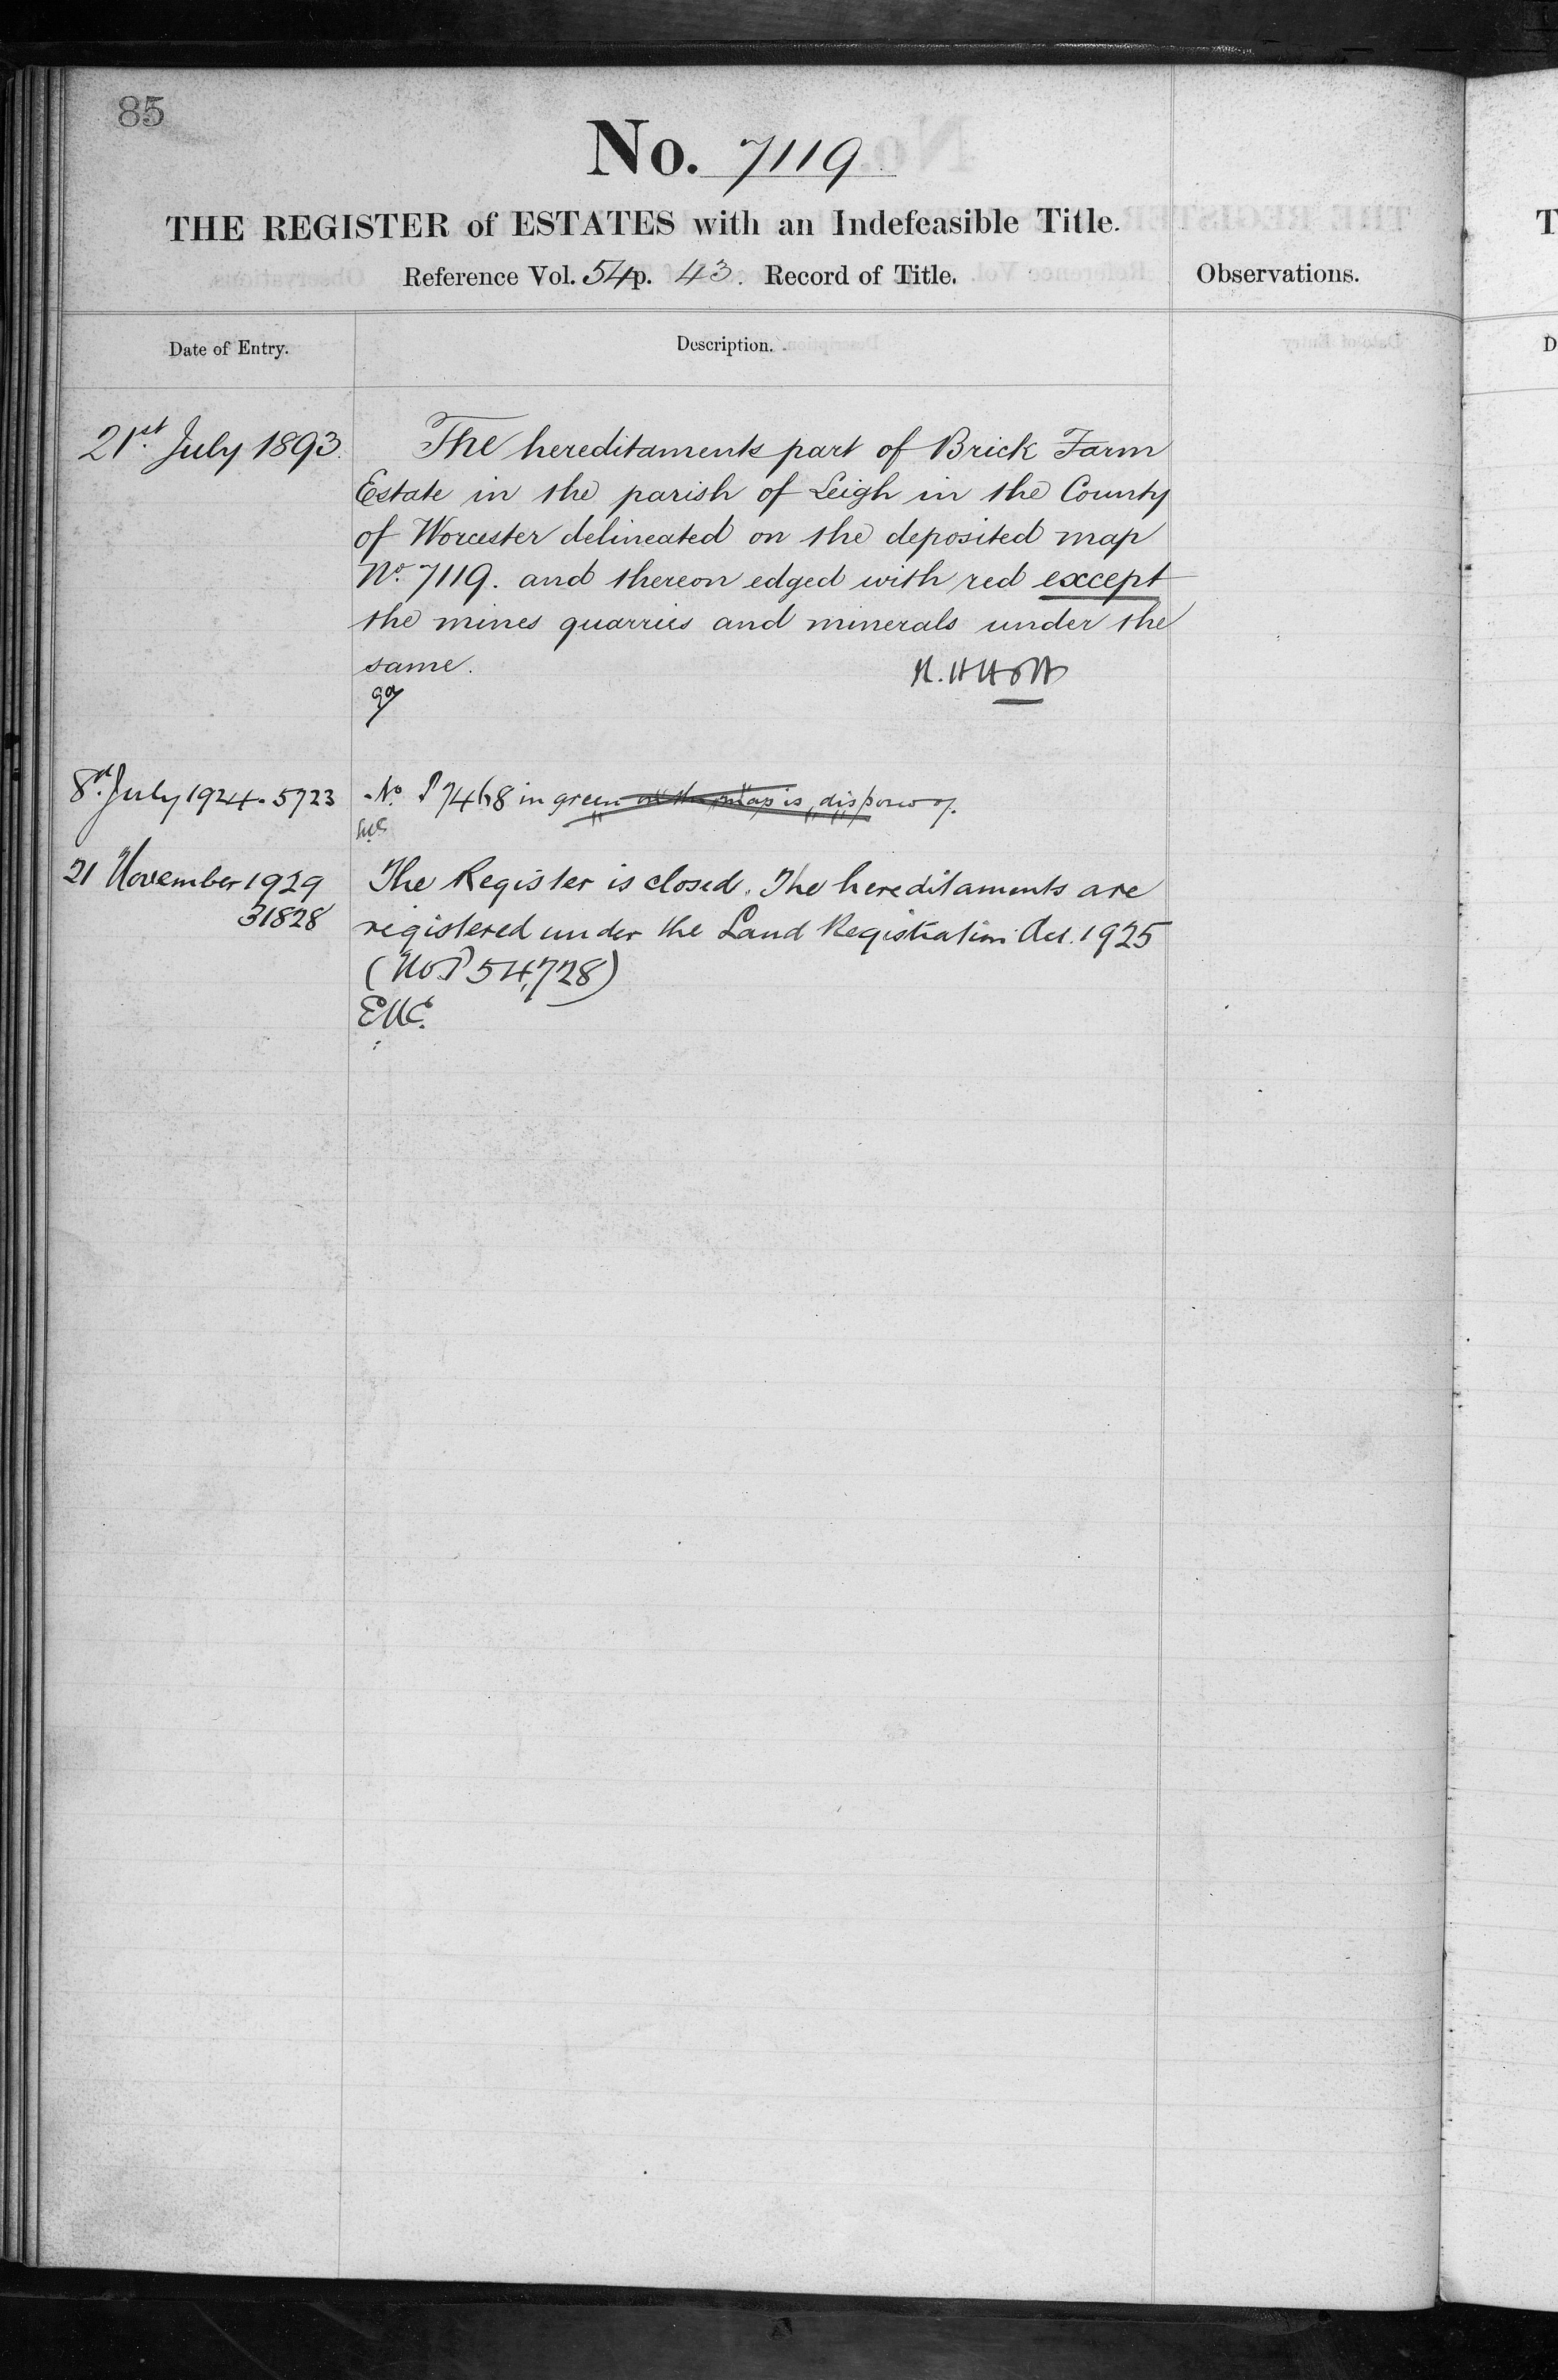 85
No. 7119
THE REGISTER of ESTATES with an Indefeasible Title.
Reference Vol. 54 p. 43. Record of Title.
Observations.
Date of Entry.
Description.
21st July 1893.
The hereditaments part of Brick Farm
Estate in the parish of Leigh in the County
of Worcester delineated on the deposited map
No. 7119. and thereon edged with red except
the mines quarries and minerals under the
same.
8th July 1924. 5723
No. P7468 in green on the map is disposed of.
21 November 1929
31828
The Register is closed. The hereditaments are
registered under the Land Registration Act. 1925
(No P 54,728)